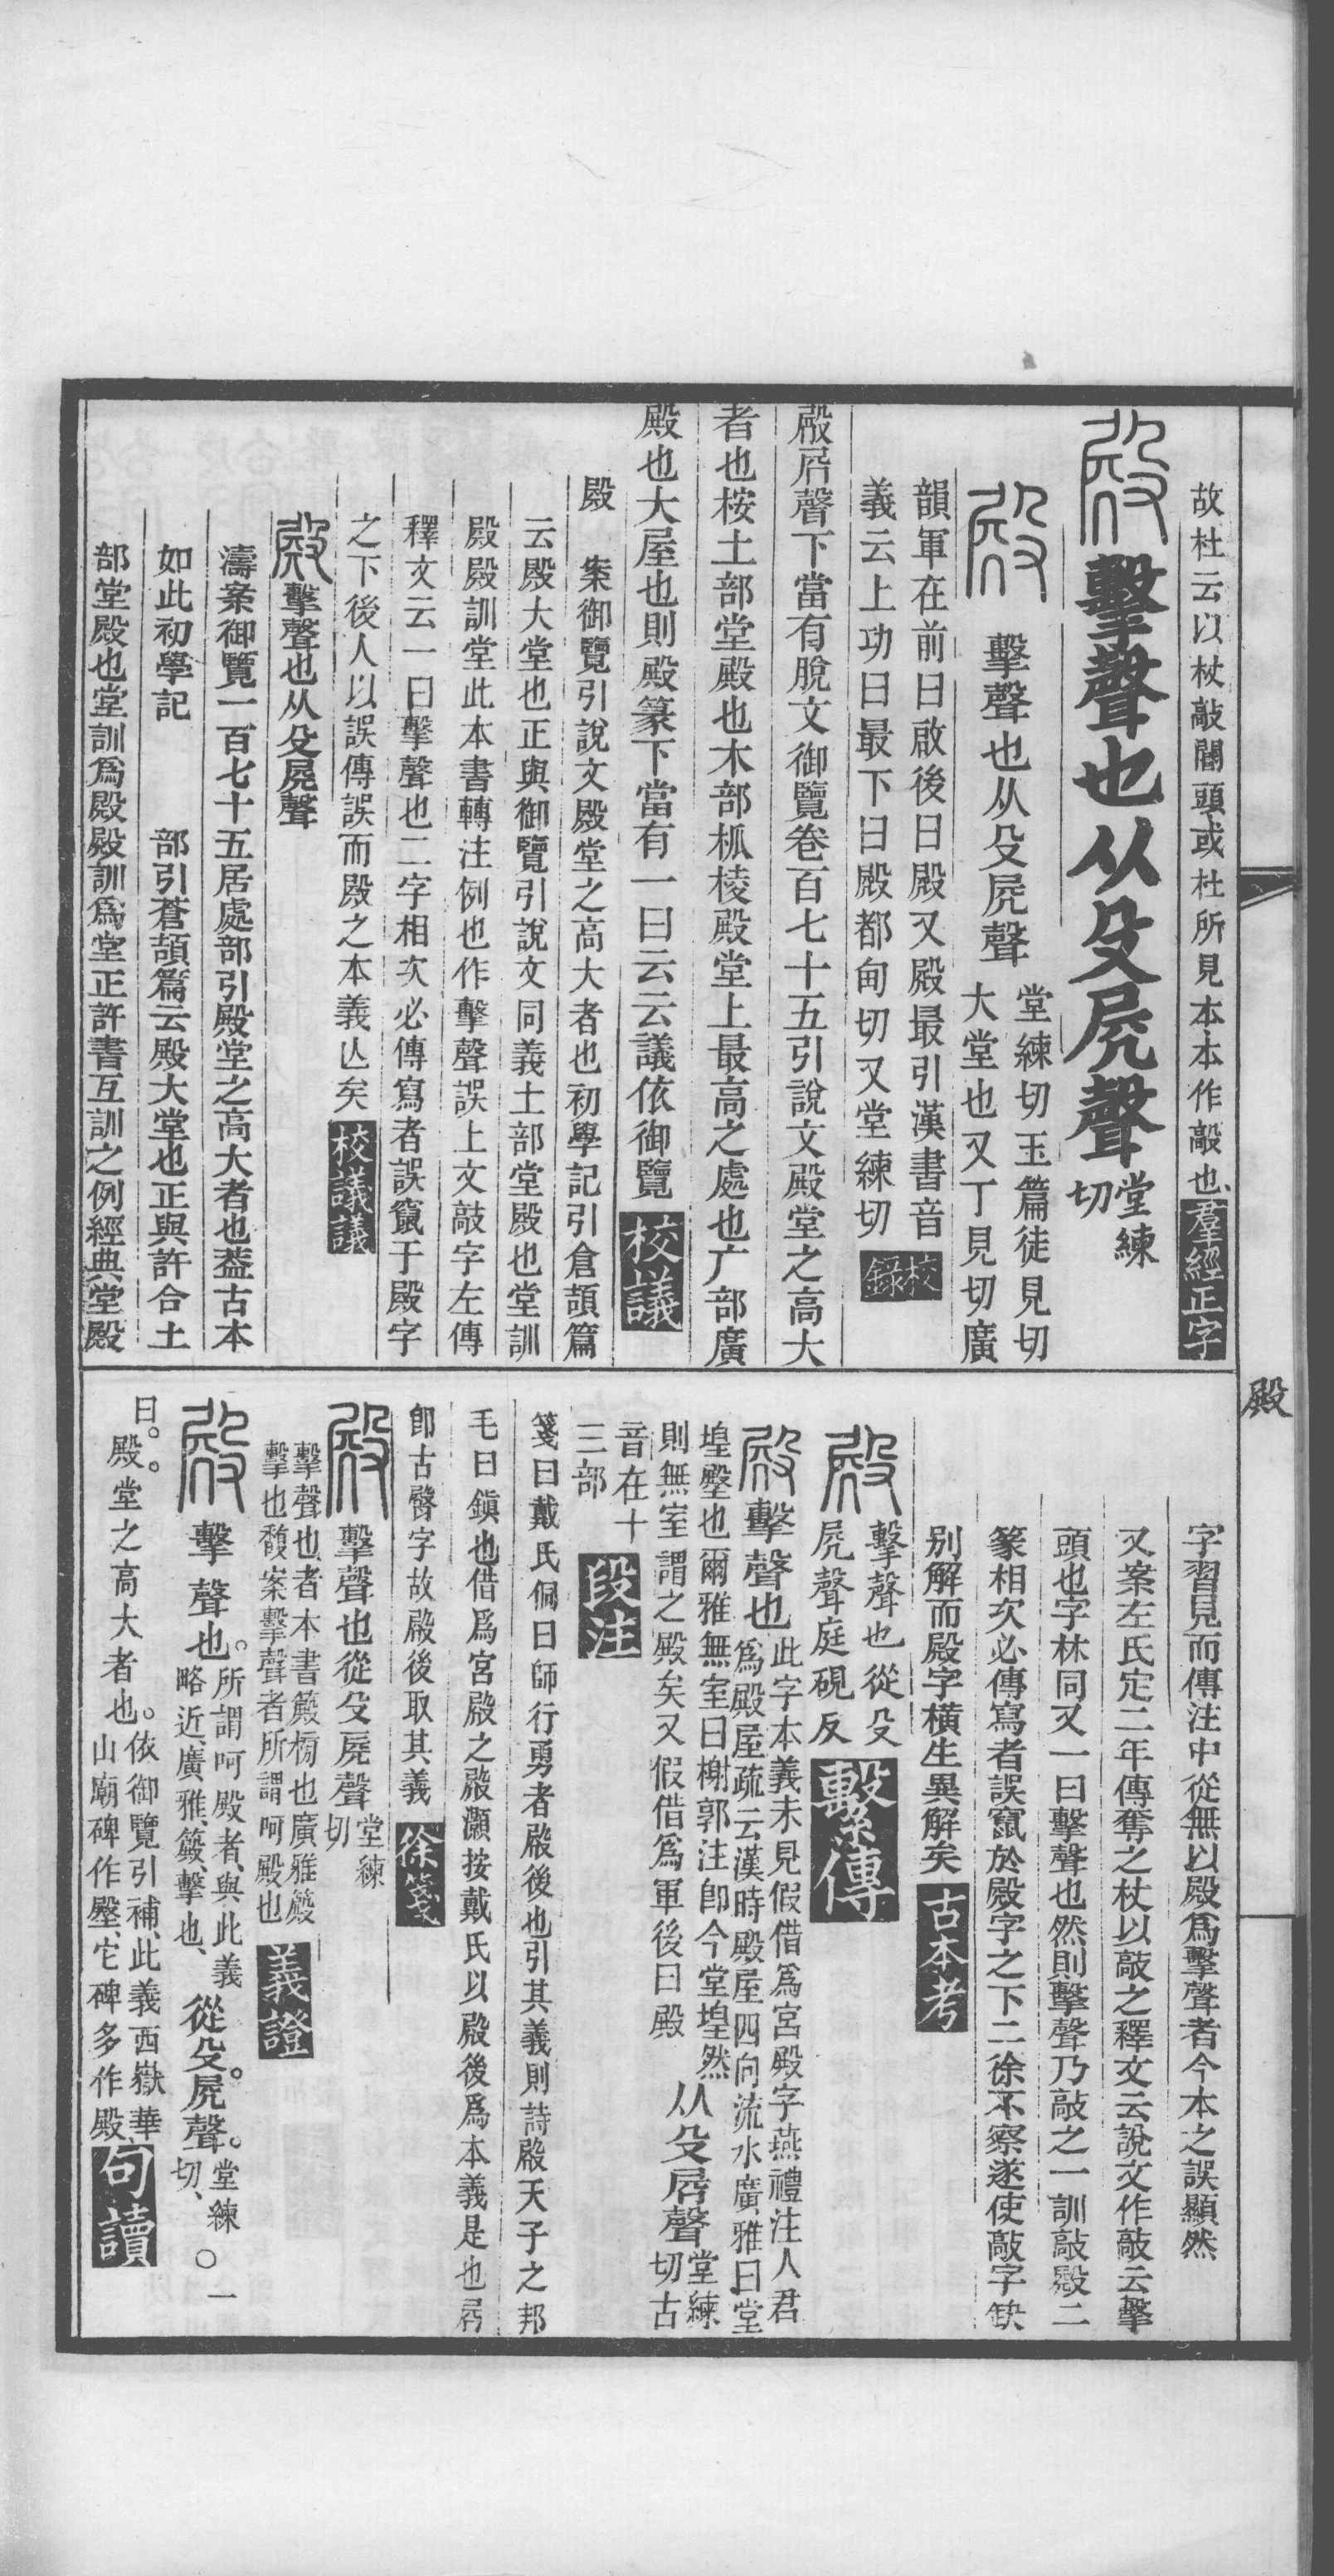 故杜云以杖敲閽頭或杜所見本本作敲也羣經正字
擊聲也从殳𡱂聲堂練切
擊聲也从殳𡱂聲堂練切玉篇徒見切
大堂也又丁見切廣
韻軍在前曰啟後曰殿又殿最引漢書音
義云上功曰最下曰殿都甸切又堂練切校錄
殿𡱒聲下當有脫文御覽卷百七十五引說文殿堂之高大
者也桉土部堂殿也木部柧棱殿堂上最高之處也广部廣
殿也大屋也則殿篆下當有一曰云云議依御覽校議
殿 案御覽引說文殿堂之高大者也初學記引倉頡篇
云殿大堂也正與御覽引說文同義土部堂殿也堂訓
殿殿訓堂此本書轉注例也作擊聲誤上文敲字左傳
釋文云一曰擊聲也二字相次必傳寫者誤竄于殿字
之下後人以誤傳誤而殿之本義亾矣校議議
擊聲也从殳𡱂聲
濤案御覽一百七十五居處部引殿堂之高大者也葢古本
如此初學記 部引蒼頡篇云殿大堂也正與許合土
部堂殿也堂訓爲殿殿訓爲堂正許書互訓之例經典堂殿
殿
字習見而傳注中從無以殿爲擊聲者今本之誤顯然
又案左氏定二年傳奪之杖以敲之釋文云說文作敲云擊
頭也字林同又一曰擊聲也然則擊聲乃敲之一訓敲殿二
篆相次必傳寫者誤竄於殿字之下二徐不察遂使敲字缺
別解而殿字橫生異解矣古本考
擊聲也從殳
𡱂聲庭硯反繫傳
擊聲也此字本義未見假借爲宮殿字燕禮注人君
爲殿屋疏云漢時殿屋四向流水廣雅曰堂
堭壂也爾雅無室曰榭郭注卽今堂堭然
則無室謂之殿矣又假借爲軍後曰殿
从殳𡱒聲堂練切古
音在十三部段注
箋曰戴氏侗曰師行勇者殿後也引其義則詩殿天子之邦
毛曰鎭也借爲宮殿之殿灝按戴氏以殿後爲本義是也𡱒
卽古臀字故殿後取其義徐箋
擊聲也從殳𡱂聲堂練切
擊聲也者本書籢榜也廣雅籢
擊也馥案擊聲者所謂呵殿也義證
擊聲也。所謂呵殿者、與此義
略近、廣雅、籢、擊也、從殳。𡱂聲。堂練切、〇一
曰。殿。堂之高大者也。依御覽引補、此義西嶽華
山廟碑作壂、它碑多作殿、句讀